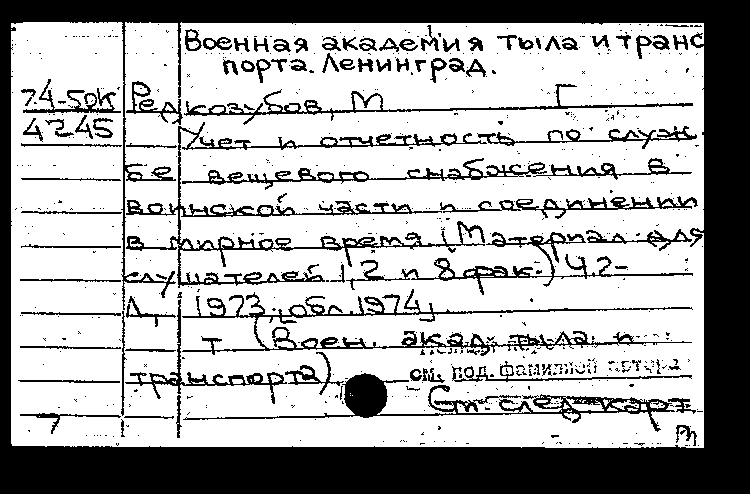 Военная академия тыла и транс
порта. Ленинград.
74-50к Редкозубов, М Г
4245 Учет и отчетность по служ
бе вещевого снабжения в
воинской части и соединении
в мирное время (Материал для
слушателей 1, 2 и 8 фак.) Ч.2-
Л., 1973, [обл. 1974]
т (Воен. акад. тыла и
транспорта)
см. под фамилией автора
См. след. карт
7